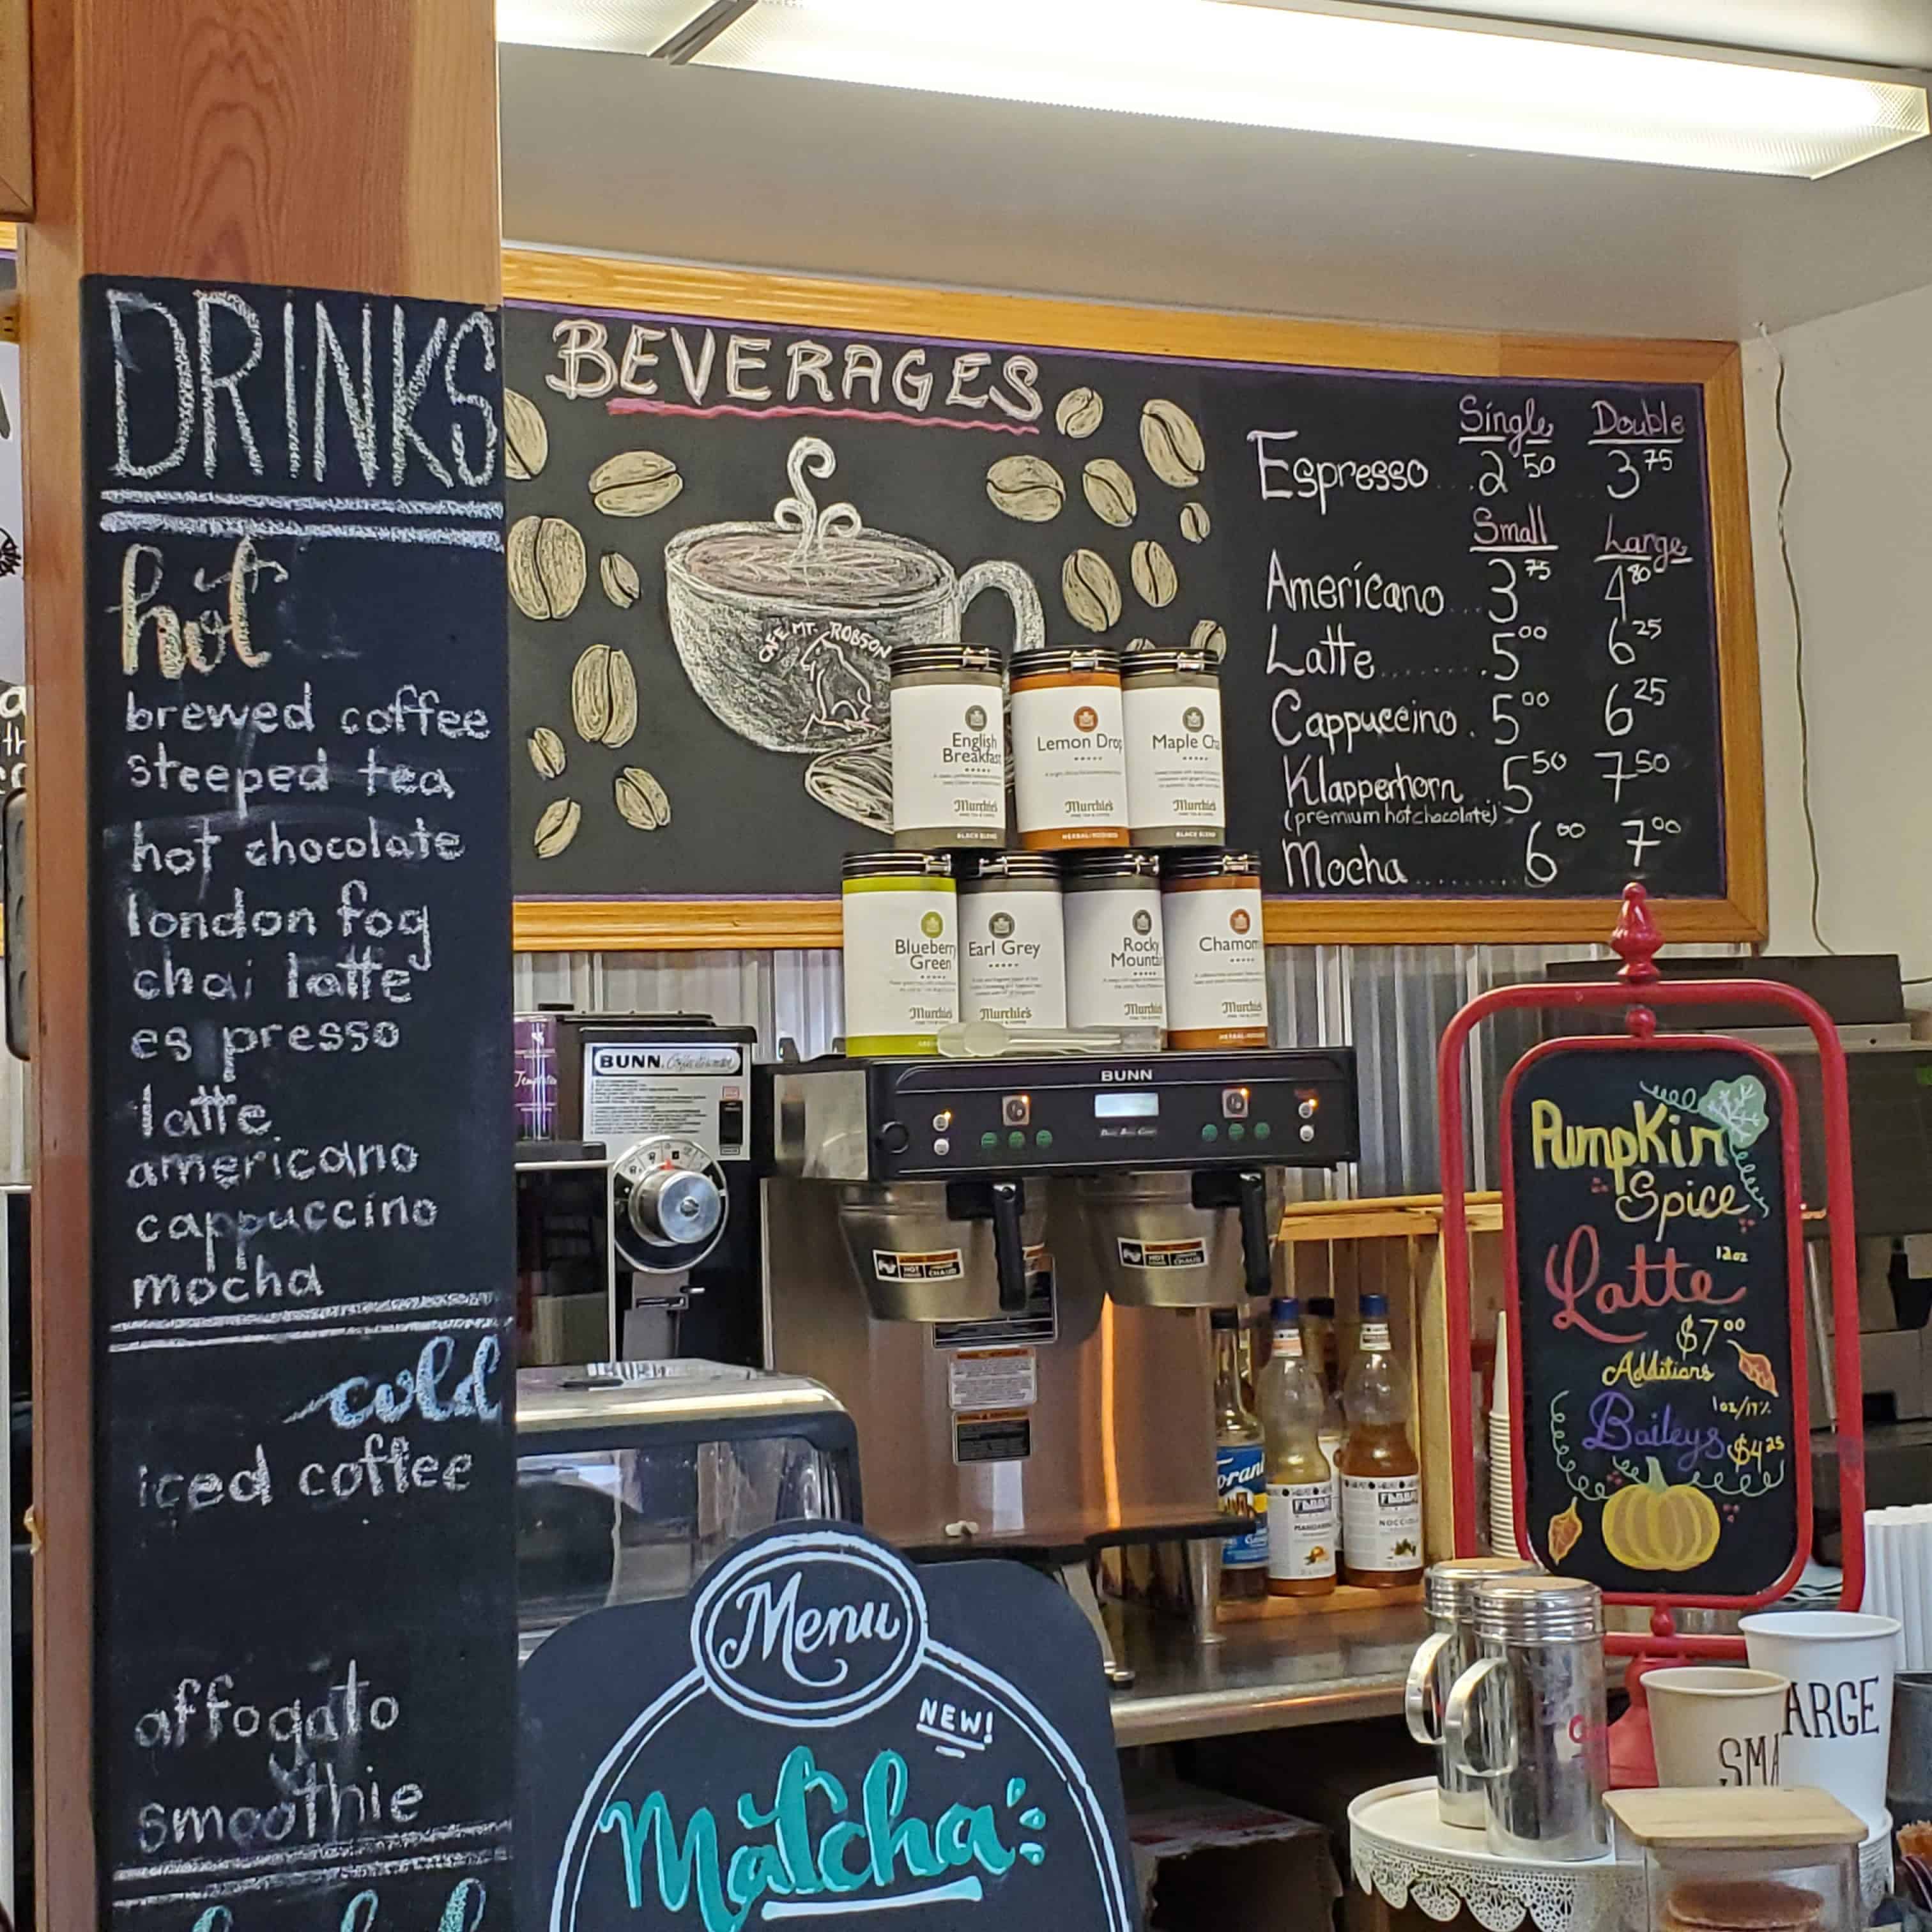 DRINKS
hot
brewed coffee
steeped tea
hot chocolate
london fog
chai latte
espresso
latte
americano
cappuccino
mocha
cold
iced coffee
affogato
smoothie
BEVERAGES
CAFE MT. ROBSON
Single Double
Espresso ..2 50 ..3 75
Small Large
Americano...3 75 4 80
Latte........5 00 6 25
Cappuccino. 5 00 6 25
Klapperhorn 5 50 7 50
(premium hot chocolate)
Mocha........ 6 00 7 00
English
Breakfast
Murchie's
BLACK BLEND
Lemon Drop
Murchie's
HERBAL/ROOIBOS
Maple
Murchie's
BLACK BLEND
Blueberry
Green
Murchie's
Earl Grey
Murchie's
Rocky
Murchie's
Murchie's
BUNN
BUNN
HOT
CHAUD
HOT
CHAUD
Pumpkin
Spice
Latte 12oz
$7 00
Additions
1oz/17%
Baileys $4 25
Menu
NEW!
Matcha
SMA
ARGE